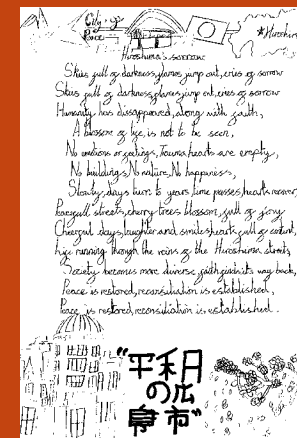 City of
Peace
Hiroshima's sorrow
Skies full of darkness, flames jump out, cries of sorrow
Skies full of darkness, flames jump out, cries of sorrow
Humanity has disappeared, along with faith,
A blossom of life, is not to be seen,
No emotions or feelings, Trauma, hearts are empty,
No buildings, No nature, No happiness,
Slowly, days turn to years, time passes, hearts recover,
Peacefull streets, cherry trees blossom, full of joy
Cheerful days, laughter and smiles, hearts full of content,
Life running through the veins of the Hiroshima, streets,
Society becomes more diverse, faith finds its way back,
Peace is restored, reconciliation is established,
Peace is restored, reconciliation is established.
"平和
の
市"